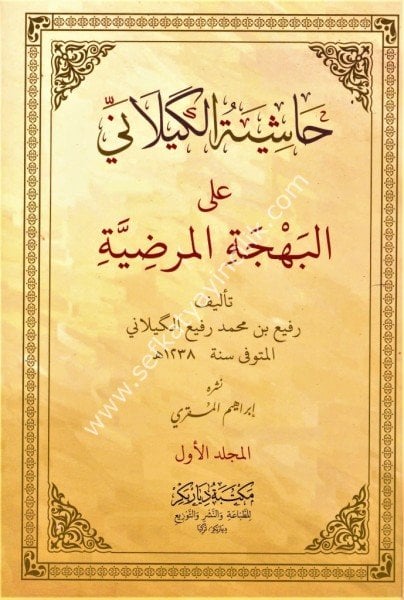 حَاشِيَةُ الگيلَانيِّ
على
البَهْجَةِ المرضِيَّةِ
تأليف
رفيع بن محمد رفيع الگيلاني
المتوفى سنة ١٢٣٨هـ
نشره
إبراهيم
المجلد الأول
مكتبة ديار بكر
للطباعة والنشر والتوزيع
ديار بكر / تركيا